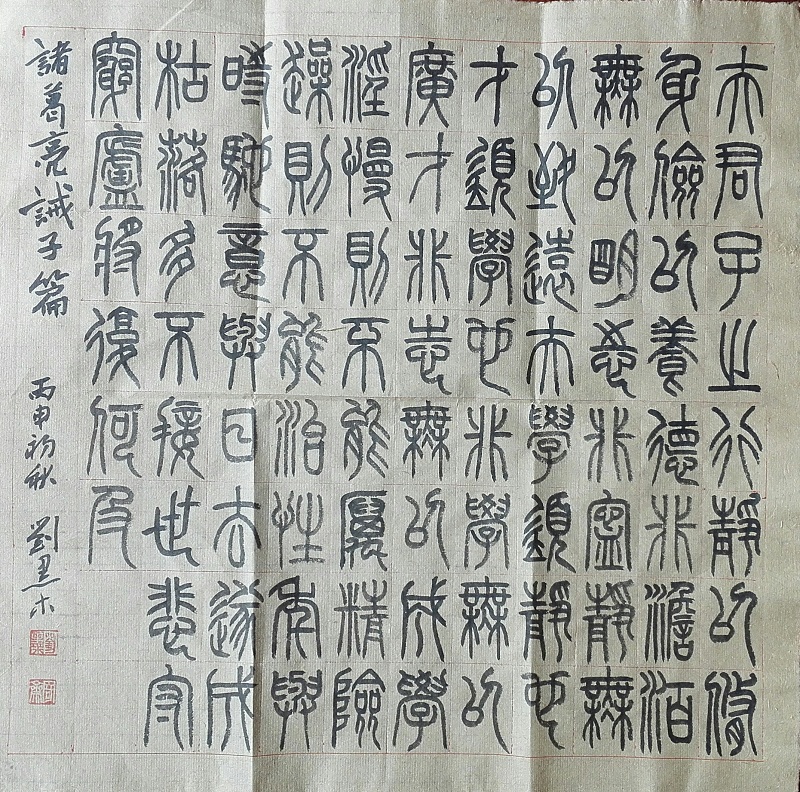 夫君子之行靜以脩
身儉以養德非澹泊
無以明志非寧靜無
以致遠夫學須靜也
才須學也非學無以
廣才非志無以成學
淫慢則不能厲精險
躁則不能治性年與
時馳意與日去遂成
枯落多不接世悲守
窮廬將復何及
諸葛亮誡子篇 丙申初秋 劉木